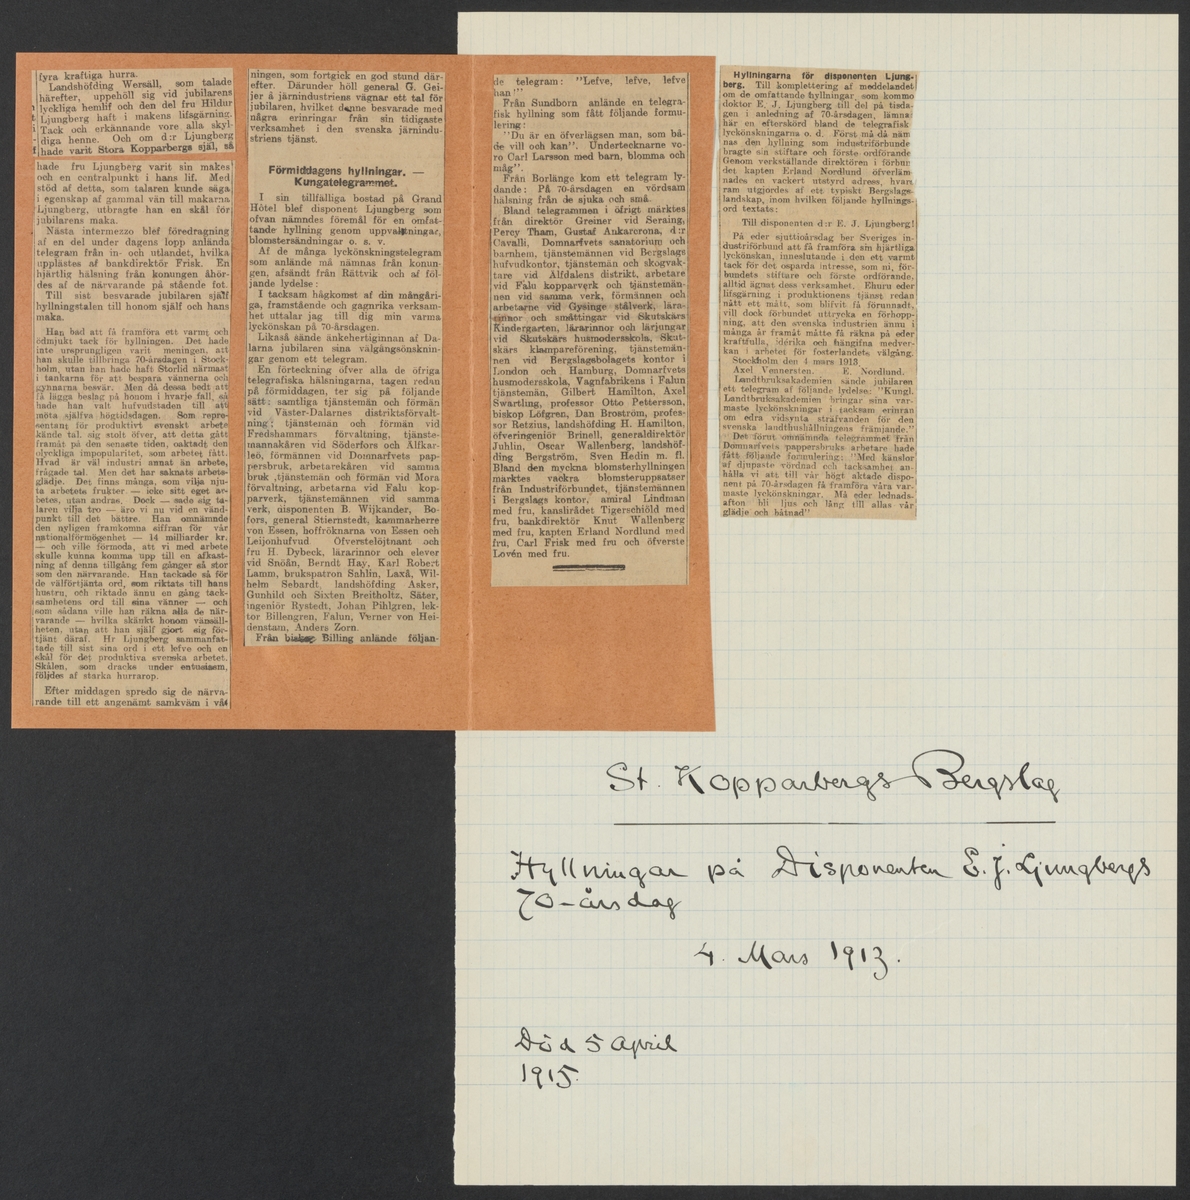 fyra kraftiga hurra.
Landshöfding Wersäll, som talade
härefter, uppehöll sig vid jubilarens
lyckliga hemlif och den del fru Hildur
Ljungberg haft i makens lifsgärning.
Tack och erkännande vore alla skyl-
diga henne. Och om d:r Ljungberg
hade varit Stora Kopparbergs själ, så
hade fru Ljungberg varit sin makes
och en centralpunkt i hans lif. Med
stöd af detta, som talaren kunde säga
i egenskap af gammal vän till makarna
Ljungberg, utbragte han en skål för
jubilarens maka.
Nästa intermezzo blef föredragning
af en del under dagens lopp anlända
telegram från in- och utlandet, hvilka
upplästes af bankdirektör Frisk. En
hjärtlig hälsning från konungen åhör-
des af de närvarande på stående fot.
Till sist besvarade jubilaren själf
hyllningstalen till honom själf och hans
maka.
Han bad att få framföra ett varmt och
ödmjukt tack för hyllningen. Det hade
inte ursprungligen varit meningen, att
han skulle tillbringa 70-årsdagen i Stock-
holm, utan han hade haft Storlid närmast
i tankarna för att bespara vännerna och
gynnarna besvär. Men då dessa bedt att
få lägga beslag på honom i hvarje fall, så
hade han valt hufvudstaden till att
möta själfva högtidsdagen. Som repre-
sentant för produktivt svenskt arbete
kände tal. sig stolt öfver, att detta gått
framåt på den senaste tiden, oaktadt den
olyckliga impopularitet, som arbetet fått.
Hvad är väl industri annat än arbete,
frågade tal. Men det har saknats arbets-
glädje. Det finns många, som vilja nju-
ta arbetets frukter — icke sitt eget ar-
betes, utan andras. Dock — sade sig ta-
laren vilja tro — äro vi nu vid en vänd-
punkt till det bättre. Han omnämnde
den nyligen framkomna siffran för vår
nationalförmögenhet — 14 milliarder kr.
— och ville förmoda, att vi med arbete
skulle kunna komma upp till en afkast-
ning af denna tillgång fem gånger så stor
som den närvarande. Han tackade så för
de välförtjänta ord, som riktats till hans
hustru, och riktade ännu en gång tack-
samhetens ord till sina vänner — och
som sådana ville han räkna alla de när-
varande — hvilka skänkt honom vänsäll-
heten, utan att han själf gjort sig för-
tjänt däraf. Hr Ljungberg sammanfat-
tade till sist sina ord i ett lefve och en
skål för det produktiva svenska arbetet.
Skålen, som dracks under entusiasm,
följdes af starka hurrarop.
Efter middagen spredo sig de närva-
rande till ett angenämt samkväm i vå
ningen, som fortgick en god stund där-
efter. Därunder höll general G. Gei-
jer å järnindustriens vägnar ett tal för
jubilaren, hvilket denne besvarade med
några erinringar från sin tidigaste
verksamhet i den svenska järnindu-
striens tjänst.
Förmiddagens hyllningar. —
Kungatelegrammet.
I sin tillfälliga bostad på Grand
Hôtel blef disponent Ljungberg som
ofvan nämndes föremål för en omfat-
tande hyllning genom uppvaktningar,
blomstersändningar o. s. v.
Af de många lyckönskningstelegram
som anlände må nämnas från konun-
gen, afsändt från Rättvik och af föl-
jande lydelse:
I tacksam hågkomst af din mångåri-
ga, framstående och gagnrika verksam-
het uttalar jag till dig min varma
lyckönskan på 70-årsdagen.
Likaså sände änkehertiginnan af Da-
larna jubilaren sina välgångsönsknin-
gar genom ett telegram.
En förteckning öfver alla de öfriga
telegrafiska hälsningarna, tagen redan
på förmiddagen, ter sig på följande
sätt: samtliga tjänstemän och förmän
vid Väster-Dalarnes distriktsförvalt-
ning; tjänstemän och förmän vid
Fredshammars förvaltning, tjänste-
mannakåren vid Söderfors och Älfkar-
leö, förmännen vid Domnarfvets pap-
persbruk, arbetarekåren vid samma
bruk, tjänstemän och förmän vid Mora
förvaltning, arbetarna vid Falu kop-
parverk, tjänstemännen vid samma
verk, disponenten B. Wijkander, Bo-
fors, general Stiernstedt, kammarherre
von Essen, hoffröknarna von Essen och
Leijonhufvud Öfverstelöjtnant och
fru H. Dybeck, lärarinnor och elever
vid Snöån, Berndt Hay, Karl Robert
Lamm, brukspatron Sahlin, Laxå, Wil-
helm Sebardt, landshöfding Asker,
Gunhild och Sixten Breitholtz, Säter,
ingeniör Rystedt, Johan Pihlgren, lek-
tor Billengren, Falun, Verner von Hei-
denstam, Anders Zorn.
Från biskop Billing anlände följan-
de telegram: "Lefve, lefve, lefve
han!"
Från Sundborn anlände en telegra-
fisk hyllning som fått följande formu-
lering:
"Du är en öfverlägsen man, som bå-
de vill och kan". Undertecknarne vo-
ro Carl Larsson med barn, blomma och
måg".
Från Borlänge kom ett telegram ly-
dande: På 70-årsdagen en vördsam
hälsning från de sjuka och små.
Bland telegrammen i öfrigt märktes
från direktör Greiner vid Seraing,
Percy Tham, Gustaf Ankarcrona, d:r
Cavalli, Domnarfvets sanatorium och
barnhem, tjänstemännen vid Bergslags
hufvudkontor, tjänstemän och skogvak-
tare vid Älfdalens distrikt, arbetare
vid Falu kopparverk och tjänstemän-
nen vid samma verk, förmännen och
arbetarne vid Gysinge stålverk, lära-
rinnor och småttingar vid Skutskärs
Kindergarten, lärarinnor och lärjungar
vid Skutskärs husmodersskola, Skut-
skärs klampareförening, tjänstemän-
nen vid Bergslagsbolagets kontor i
London och Hamburg, Domnarfvets
husmodersskola, Vagnfabrikens i Falun
tjänstemän, Gilbert Hamilton, Axel
Swartling, professor Otto Pettersson,
biskop Löfgren, Dan Broström, profes-
sor Retzius, landshöfding H. Hamilton,
öfveringeniör Brinell, generaldirektör
Juhlin, Oscar Wallenberg, landshöf-
ding Bergström, Sven Hedin m. fl.
Bland den myckna blomsterhyllningen
märktes vackra blomsteruppsatser
från Industriförbundet, tjänstemännen
i Bergslags kontor, amiral Lindman
med fru, kanslirådet Tigerschiöld med
fru, bankdirektör Knut Wallenberg
med fru, kapten Erland Nordlund med
fru, Carl Frisk med fru och öfverste
Lovén med fru.
Hyllningarna för disponenten Ljung-
berg. Till komplettering af meddelandet
om de omfattande hyllningar, som kommo
doktor E. J. Ljungberg till del på tisda-
gen i anledning af 70-årsdagen, lämna
här en efterskörd bland de telegrafisk
lyckönskningarna o. d. Först må då näm
nas den hyllning som industriförbunde
bragte sin stiftare och förste ordförande
Genom verkställande direktören i förbun
det kapten Erland Nordlund öfverläm
nades en vackert utstyrd adress, hvars
ram utgjordes af ett typiskt Bergslags-
landskap, inom hvilken följande hyllnings-
ord textats:
Till disponenten d:r E. J. Ljungberg!
På eder sjuttioårsdag ber Sveriges in-
dustriförbund att få framföra sin hjärtliga
lyckönskan, inneslutande i den ett varmt
tack för det osparda intresse, som ni, för-
bundets stiftare och förste ordförande,
alltid ägnat dess verksamhet. Ehuru eder
lifsgärning i produktionens tjänst redan
nått ett mått, som blifvit få förunnadt,
vill dock förbundet uttrycka en förhopp-
ning, att den svenska industrien ännu i
många år framåt måtte få räkna på eder
kraftfulla, idérika och hängifna medver-
kan i arbetet för fosterlandets välgång.
Stockholm den 4 mars 1913.
Axel Vennersten. E. Nordlund.
Landtbruksakademien sände jubilaren
ett telegram af följande lydelse: "Kungl.
Landtbruksakademien bringar sina var-
maste lyckönskningar i tacksam erinran
om edra vidsynta sträfvanden för den
svenska landthushållningens främjande."
Det förut omnämnda telegrammet från
Domnarfvets pappersbruks arbetare hade
fått följande formulering: "Med känslor
af djupaste vördnad och tacksamhet an-
hålla vi att till vår högt aktade dispo-
nent på 70-årsdagen få framföra våra var-
maste lyckönskningar. Må eder lefnads-
afton bli ljus och lång till allas vår
glädje och båtnad"
St. Kopparbergs Bergslag
Hyllningar på Disponenten E. J. Ljungbergs
70-årsdag
4. Mars 1913.
Död 5 April
1915.